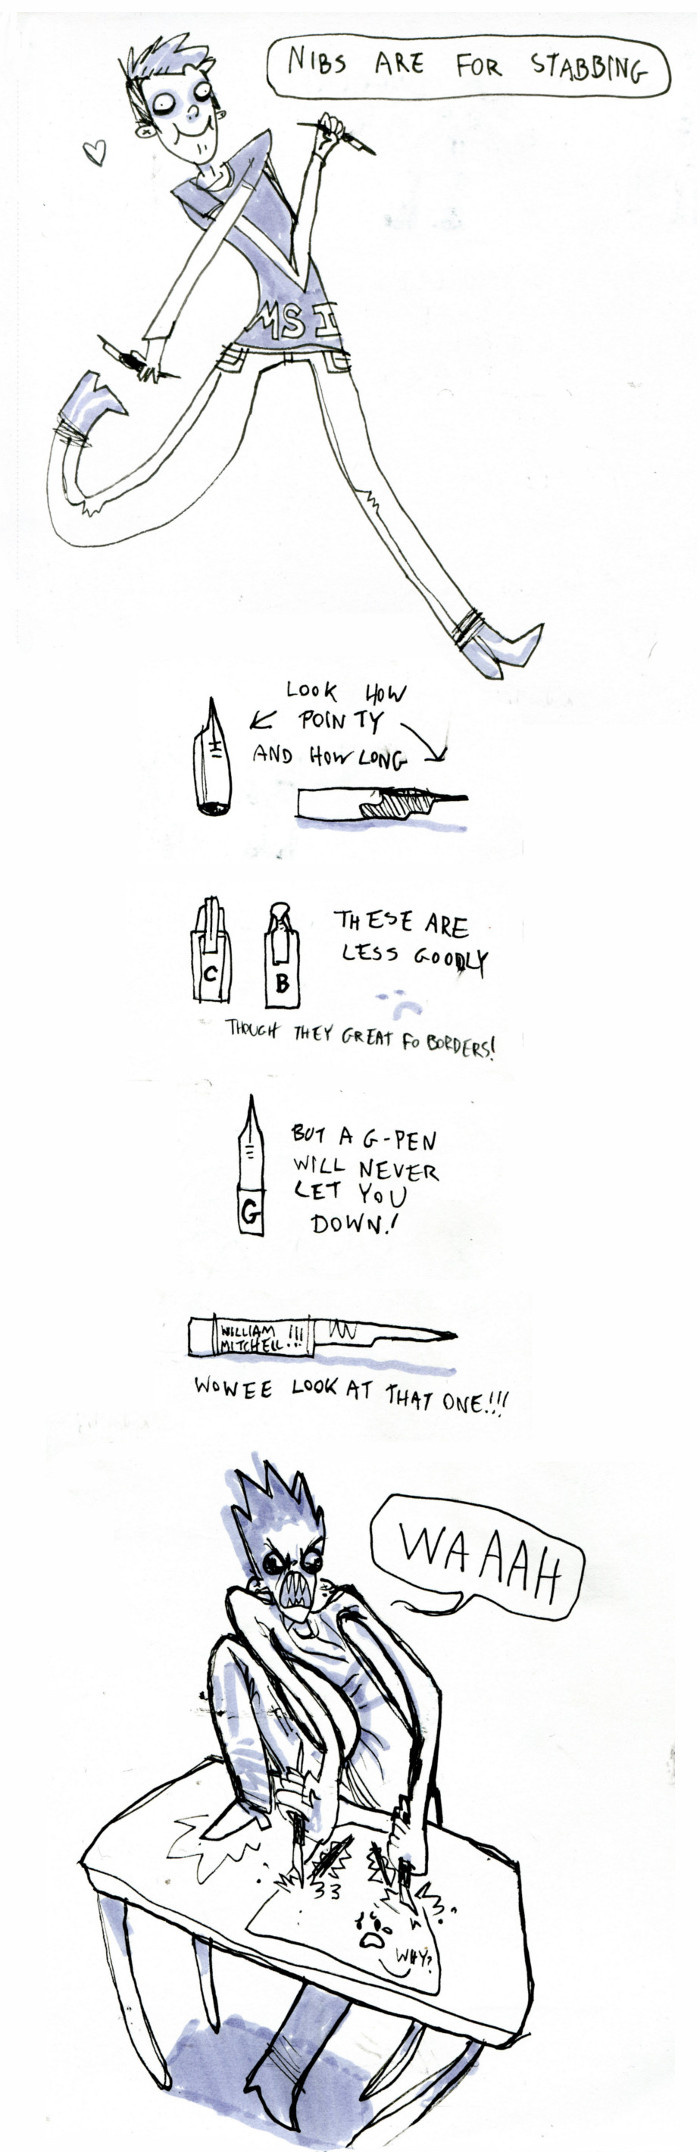 NIBS ARE FOR STABBING
MSI
LOOK HOW
POINTY
AND HOW LONG
C
B
THESE ARE
LESS GOODLY
THOUGH THEY GREAT FO BORDERS!
G
BUT A G-PEN
WILL NEVER
LET YOU
DOWN!
WILLIAM
MITCHELL!!!
WOWEE LOOK AT THAT ONE!!!
WAAAH
WHY?